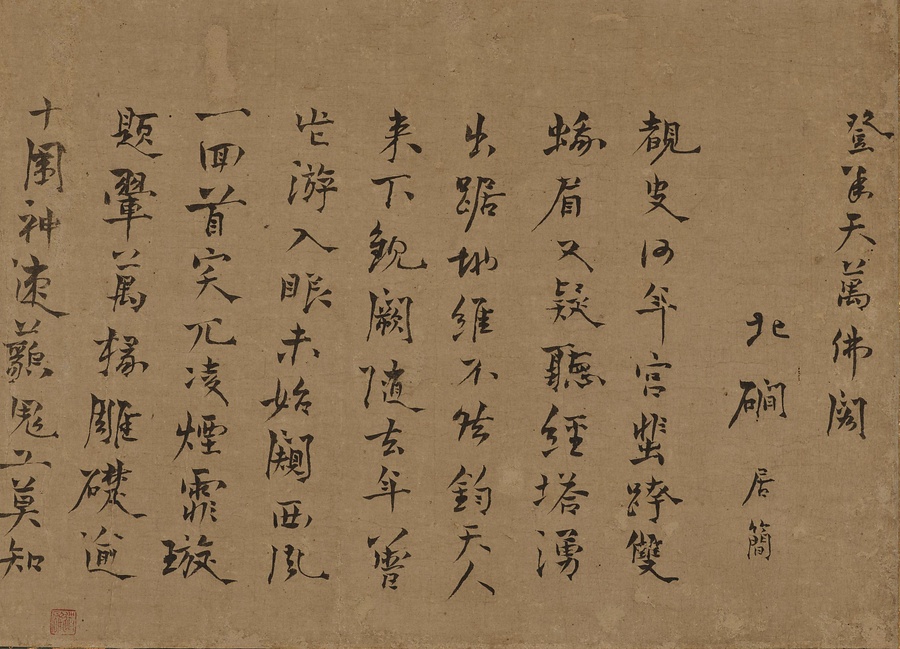 登承天萬佛閣
北磵 居簡
覩史何年宮蜚跨雙
眉又疑聽經塔湧
出踞地維不然鈞天人
來下觀闕隨去年曾
此游入眼未始闚西風
一回首突兀凌煙霏璇
題翬萬椽雕礎逾
十圍神速鬼工莫知